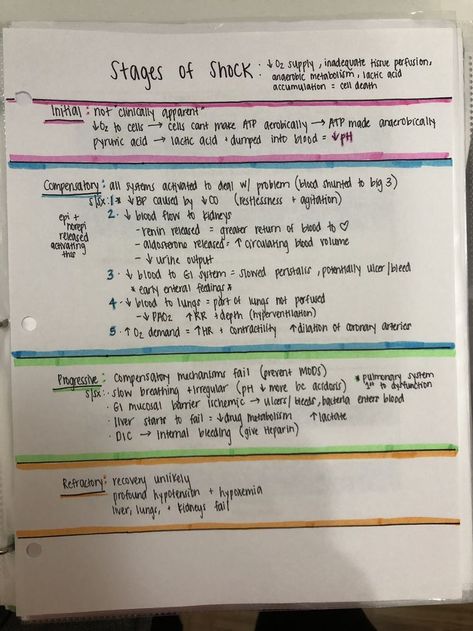 Stages of Shock : ↓ O2 supply, inadequate tissue perfusion,
anaerobic metabolism, lactic acid
accumulation = cell death
Initial : not "clinically apparent"
↓O2 to cells → cells cant make ATP aerobically → ATP made anaerobically
pyruvic acid → lactic acid + dumped into blood = ↓pH
Compensatory: all systems activated to deal w/ problem (blood shunted to big 3)
s/sx: 1 * ↓BP caused by ↓CO (restlessness + agitation)
epi +
norepi
released
activating
this
2. ↓ blood flow to kidneys
- renin released = greater return of blood to ♡
- aldosterone released = ↑ circulating blood volume
- ↓ urine output
3. ↓ blood to GI system = slowed peristalsis, potentially ulcer/bleed
* early enteral feedings *
4. ↓ blood to lungs = part of lungs not perfused
- ↓ PAO2 ↑RR + depth (hyperventilation)
5. ↑ O2 demand = ↑HR + contractility ↑ dilation of coronary arteries
Progressive: compensatory mechanisms fail (prevent MODS)
* pulmonary system
1st to dysfunction
s/sx: · slow breathing + irregular (pH ↓ more bc acidosis)
· GI mucosal barrier ischemic → ulcers/bleeds, bacteria enters blood
· liver starts to fail = ↓drug metabolism ↑ lactate
· DIC → internal bleeding (give Heparin)
Refractory: recovery unlikely
profound hypotension + hypoxemia
liver, lungs, + kidneys fail